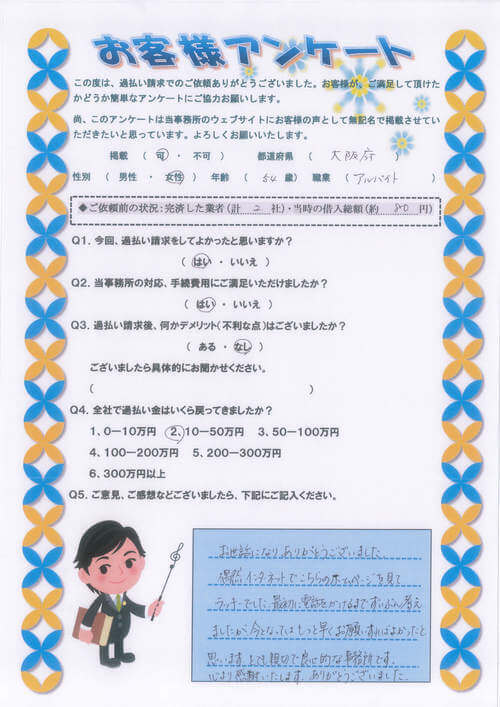 お客様アンケート
この度は、過払い請求でのご依頼ありがとうございました。お客様が、ご満足して頂けた
かどうか簡単なアンケートにご協力お願いします。
尚、このアンケートは当事務所のウェブサイトにお客様の声として無記名で掲載させてい
ただきたいと思っています。よろしくお願いいたします。
掲載 ( 可 ・ 不可 ) 都道府県 ( 大阪府 )
性別 ( 男性 ・ 女性 ) 年齢 ( 54 歳) 職業 ( アルバイト )
◆ご依頼前の状況:完済した業者(計 2 社)・当時の借入総額(約 80 円)
Q1. 今回、過払い請求をしてよかったと思いますか?
( はい ・ いいえ )
Q2. 当事務所の対応、手続費用にご満足いただけましたか?
( はい ・ いいえ )
Q3. 過払い請求後、何かデメリット(不利な点)はございましたか?
( ある ・ なし )
ございましたら具体的にお聞かせください。
( )
Q4. 全社で過払い金はいくら戻ってきましたか?
1、0-10万円 2、10-50万円 3、50-100万円
4、100-200万円 5、200-300万円
6、300万円以上
Q5. ご意見、ご感想などございましたら、下記にご記入ください。
お世話になり ありがとうございました
偶然 インターネットでこちらのホームページを見て
ラッキーでした。最初に電話をかけるまでずいぶん考え
ましたが今となってはもっと早くお願いすればよかったと
思います。とても親切で良心的な事務所です。
心より感謝いたします。ありがとうございました。